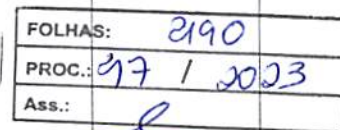 FOLHAS: 2190
PROC.: 97 / 2023
Ass.: